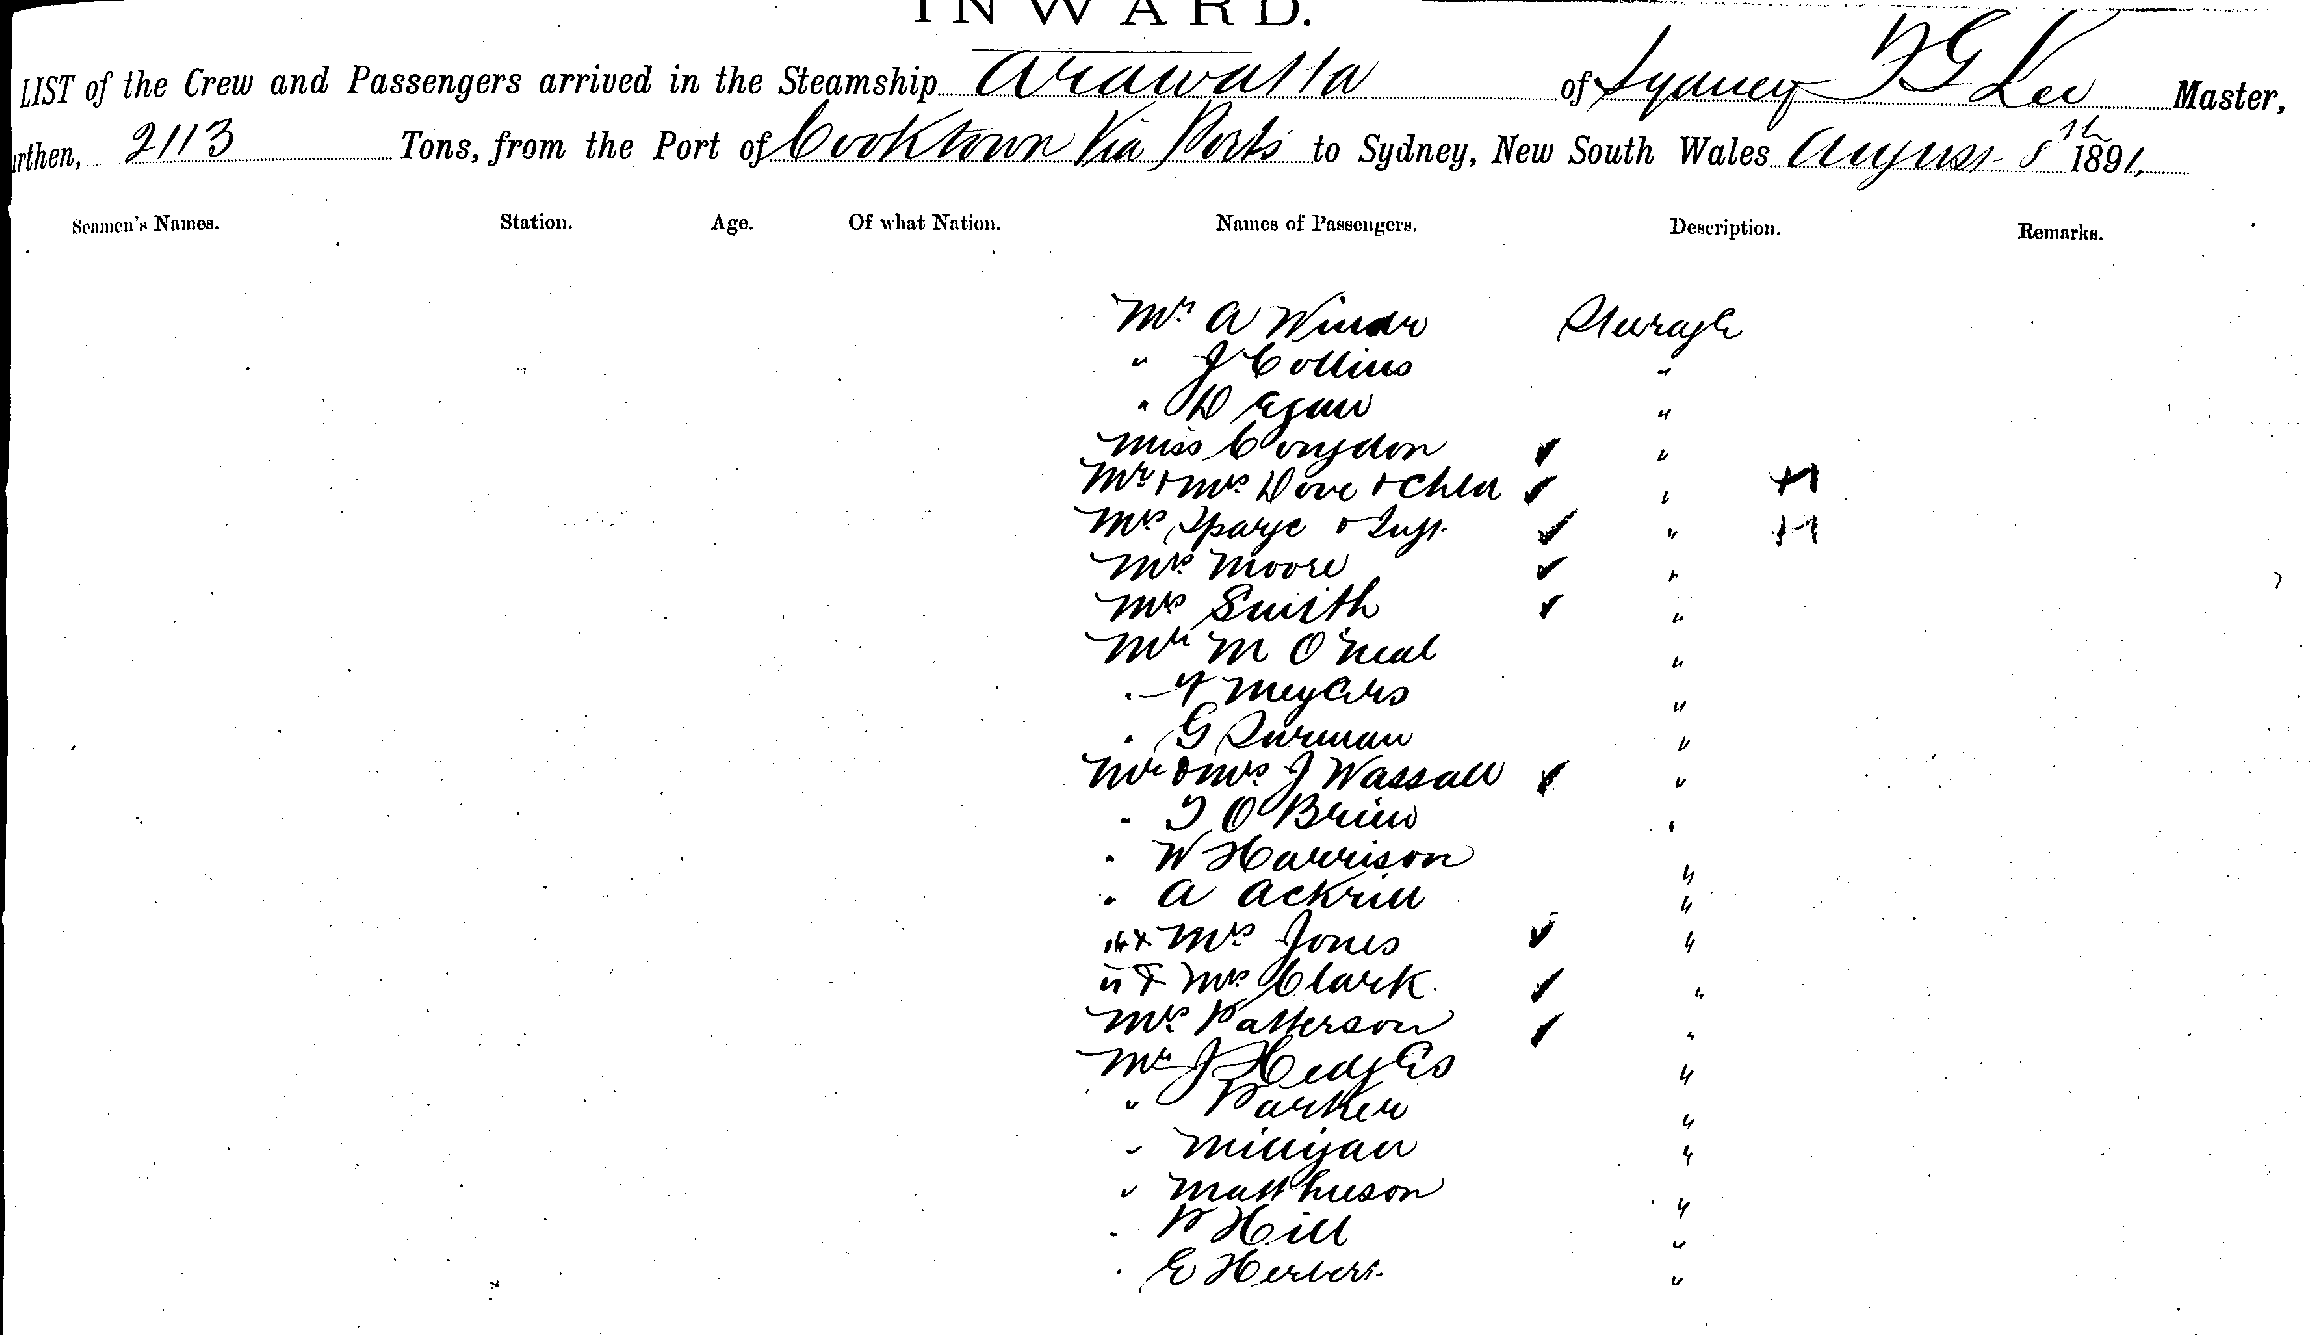 INWARD.
LIST of the Crew and Passengers arrived in the Steamship Arawatta of Sydney F G Lee Master,
urthen, 2113 Tons, from the Port of Cooktown Via Ports to Sydney, New South Wales August 8th 1891,
Seamen's Names. Station. Age. Of what Nation. Names of Passengers. Description. Remarks.
Mr. A Windr Steerage
" J Collins "
" D Egan "
Miss Corydon ✓ "
Mr + Mrs Dove + Child ✓ "
Mrs Sparge + Inft. ✓ "
Mrs Moore ✓ "
Mrs Smith ✓ "
Mr M O'Neal "
" F Meyers "
" G Surman "
Mr & Mrs J Wassall ✓ "
" T O'Brien "
" W Harrison "
" A Ackrill "
" + Mrs Jones ✓ "
" + Mrs Clark. ✓ "
Mrs Patterson ✓ "
Mr J Hedges "
" Parker "
" Milligan "
" Matthieson "
" P Hill "
" E Herbert "